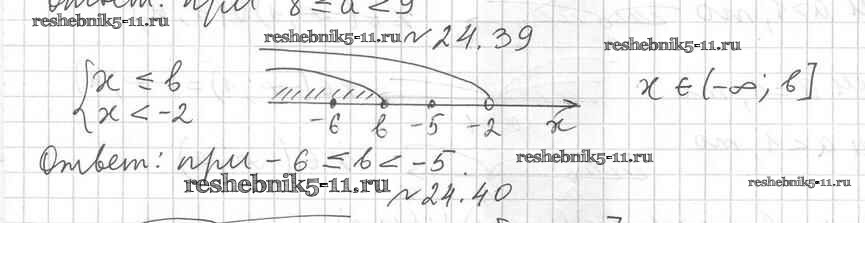 Ответ: при 8 ≤ a < 9
reshebnik5-11.ru
reshebnik5-11.ru № 24.39 reshebnik5-11.ru
{ x ≤ b
x < -2
-6 b -5 -2 x
x ∈ (-∞; b]
Ответ: при -6 ≤ b < -5. reshebnik5-11.ru
reshebnik5-11.ru
№ 24.40 reshebnik5-11.ru